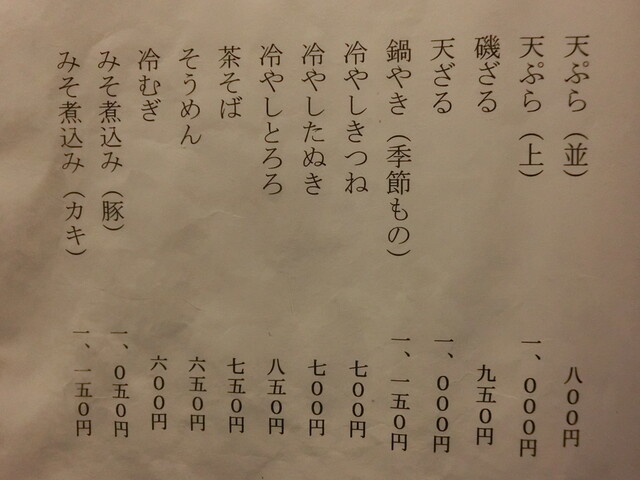 天ぷら（並） 八〇〇円
天ぷら（上） 一、〇〇〇円
磯ざる 九五〇円
天ざる 一、〇〇〇円
鍋やき（季節もの） 一、一五〇円
冷やしきつね 七〇〇円
冷やしたぬき 七〇〇円
冷やしとろろ 八五〇円
茶そば 七五〇円
そうめん 六五〇円
冷むぎ 六〇〇円
みそ煮込み（豚） 一、〇五〇円
みそ煮込み（カキ） 一、一五〇円